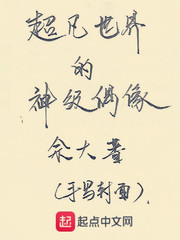 超凡世界
的
神级偶像
佘大書
(手写封面)
起 起点中文网